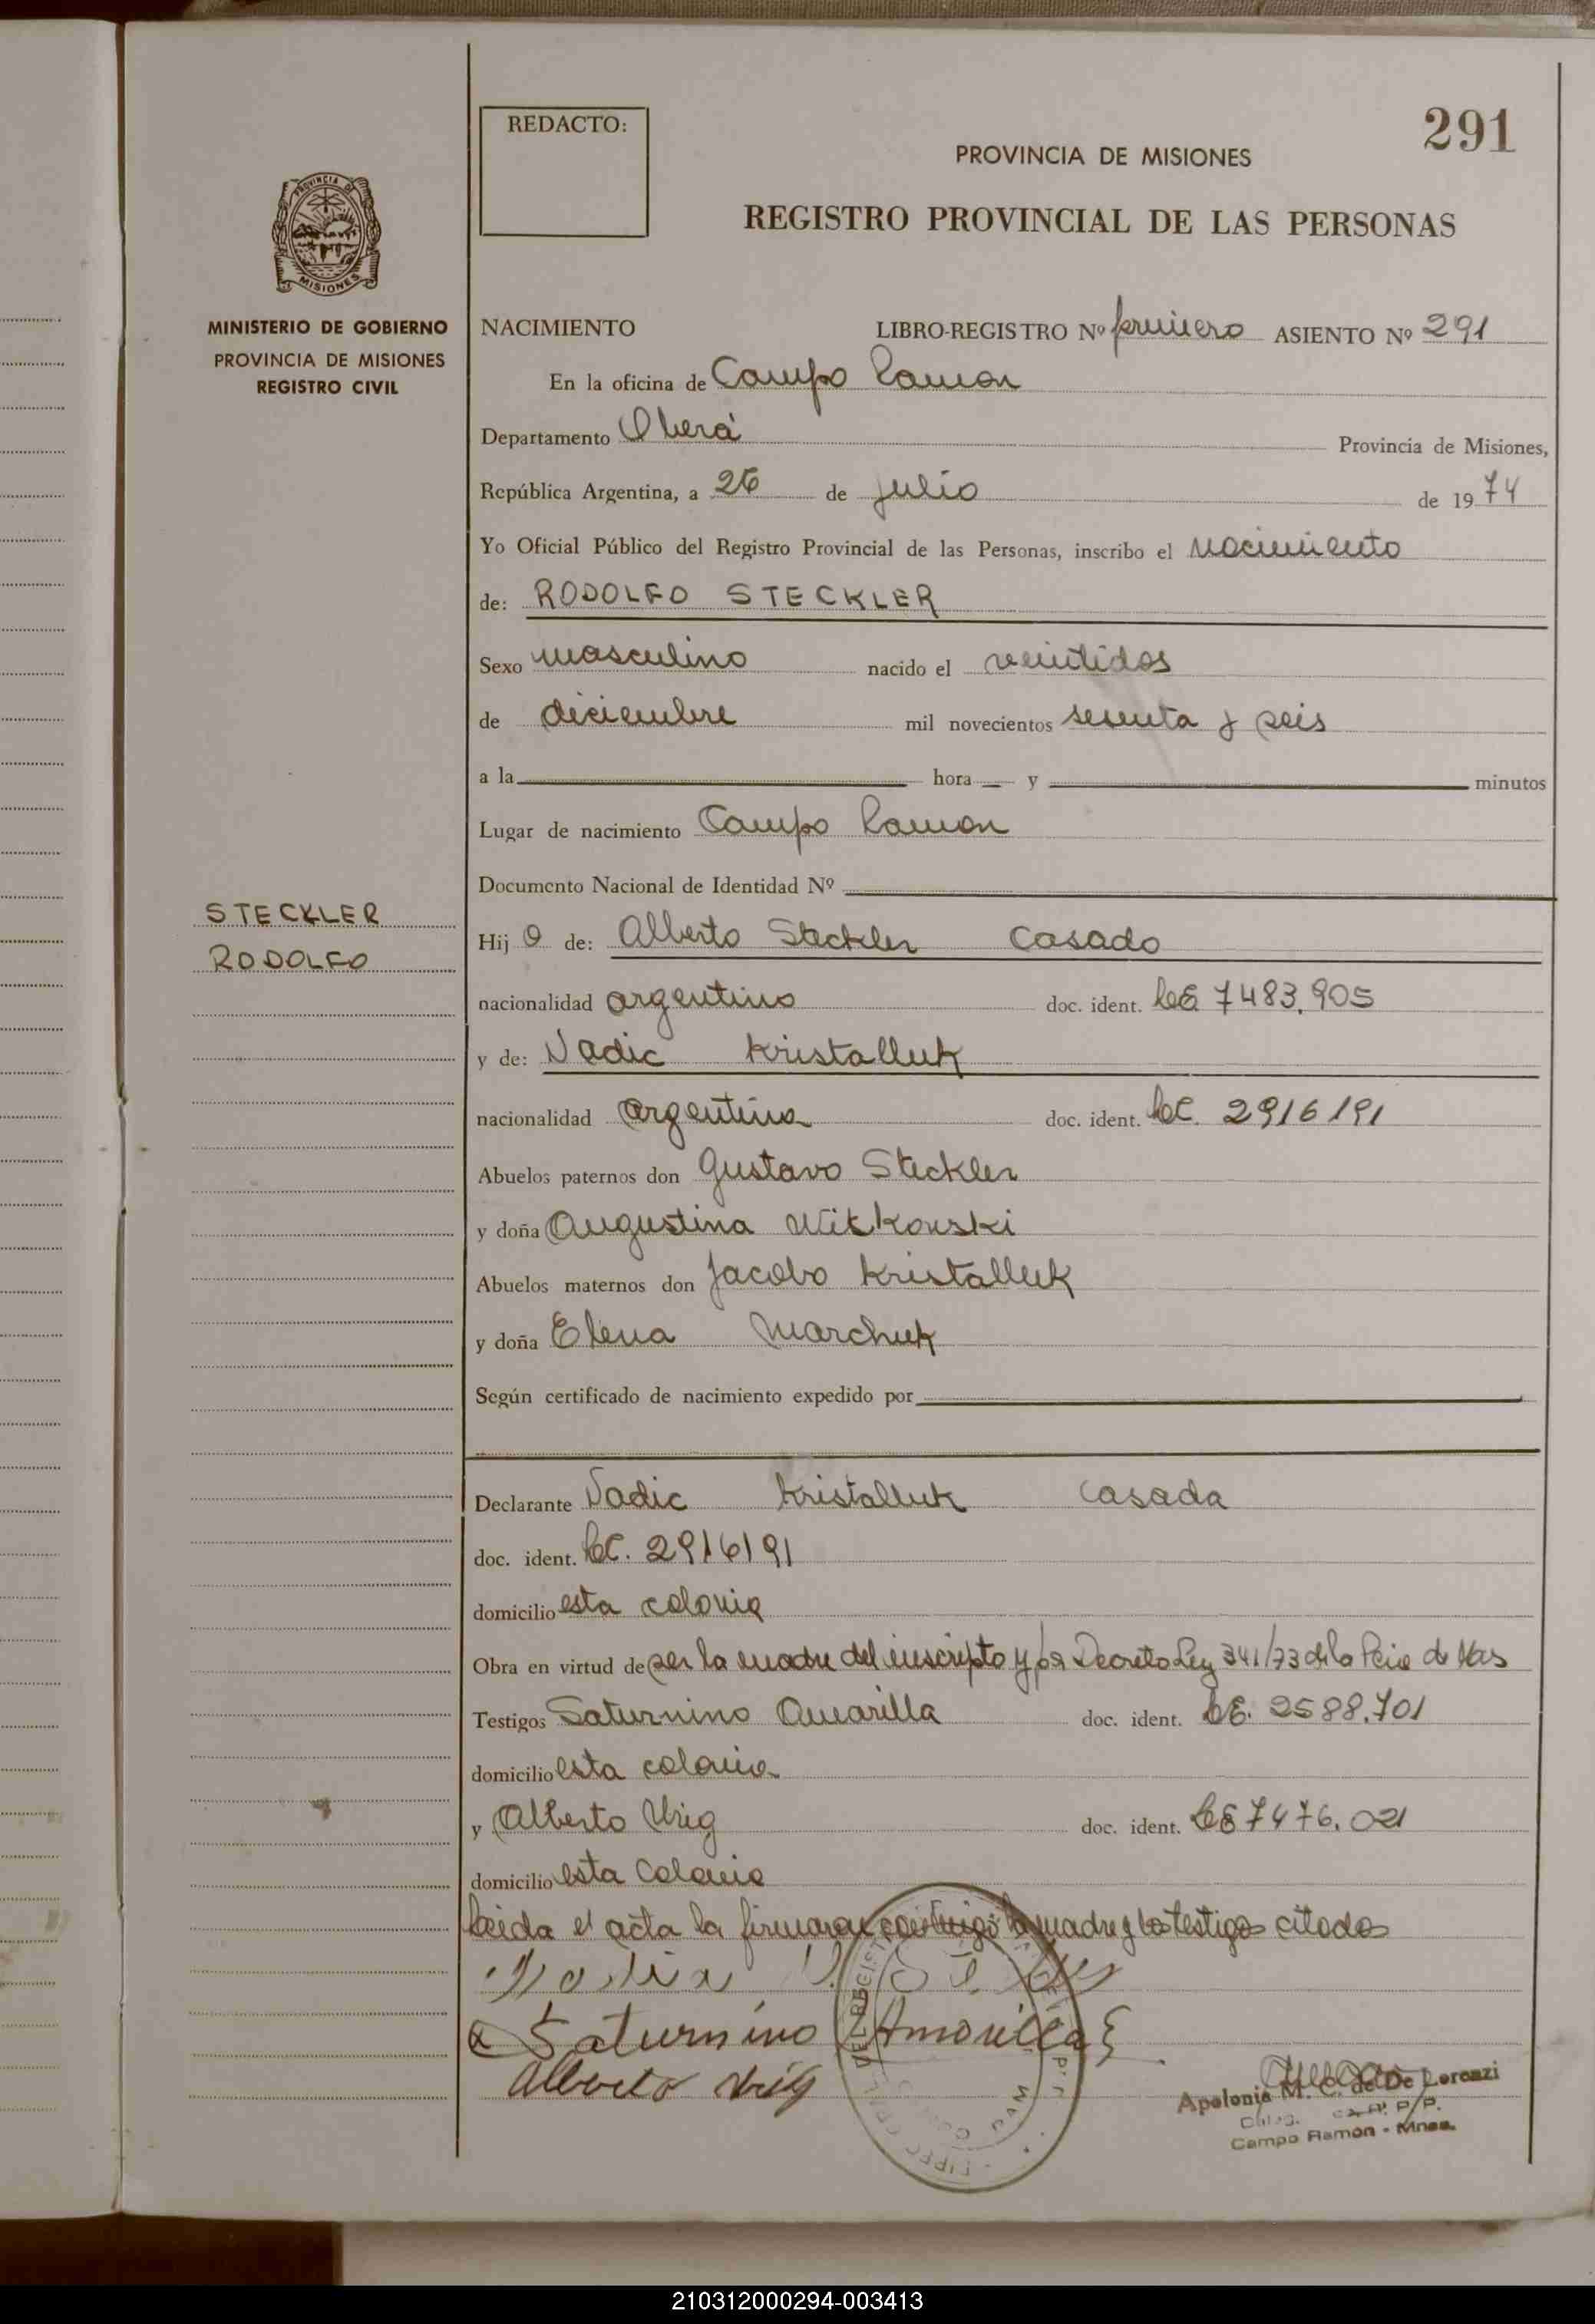 291
REDACTO:
PROVINCIA DE MISIONES
REGISTRO PROVINCIAL DE LAS PERSONAS
PROVINCIA DE
MISIONES
MINISTERIO DE GOBIERNO
PROVINCIA DE MISIONES
REGISTRO CIVIL
NACIMIENTO LIBRO-REGISTRO Nº primero ASIENTO Nº 291
En la oficina de Campo Ramon
Departamento Oberá Provincia de Misiones,
República Argentina, a 26 de julio de 1974
Yo Oficial Público del Registro Provincial de las Personas, inscribo el nacimiento
de: RODOLFO STECKLER
Sexo masculino nacido el veintidos
de diciembre mil novecientos sesenta y seis
a la hora y minutos
Lugar de nacimiento Campo Ramon
Documento Nacional de Identidad Nº
STECKLER
RODOLFO
Hij o de: Alberto Steckler casado
nacionalidad argentino doc. ident. LE 7483.905
y de: Nadic Kristalluk
nacionalidad argentina doc. ident. LC. 2916191
Abuelos paternos don Gustavo Steckler
y doña Augustina Witkouski
Abuelos maternos don Jacobo Kristalluk
y doña Elena Marchuk
Según certificado de nacimiento expedido por
Declarante Nadic Kristalluk casada
doc. ident. LC. 2916191
domicilio esta colonia
Obra en virtud de ser la madre del inscripto y por Decreto Ley 341/73 de la Pcia de Mns
Testigos Saturnino Amarilla doc. ident. LE. 2588.701
domicilio esta colonia
y Alberto Urig doc. ident. LE 7476.021
domicilio esta Colonia
Leida el acta la firmaran conmigo la madre y los testigos citados
Saturnino Amarilla
Alberto Urig
Apolonia M. C. de De Lorenzi
R. P. P.
Campo Ramón - Mnes.
210312000294-003413